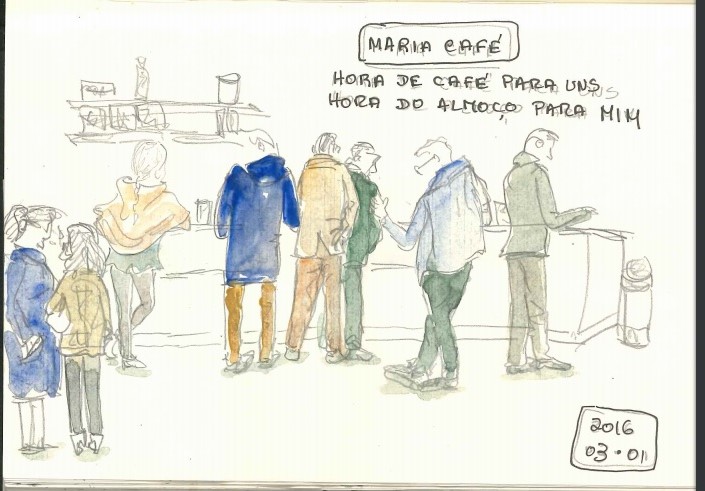 MARIA CAFÉ
HORA DE CAFÉ PARA UNS
HORA DO ALMOÇO PARA MIM
2016
03.01